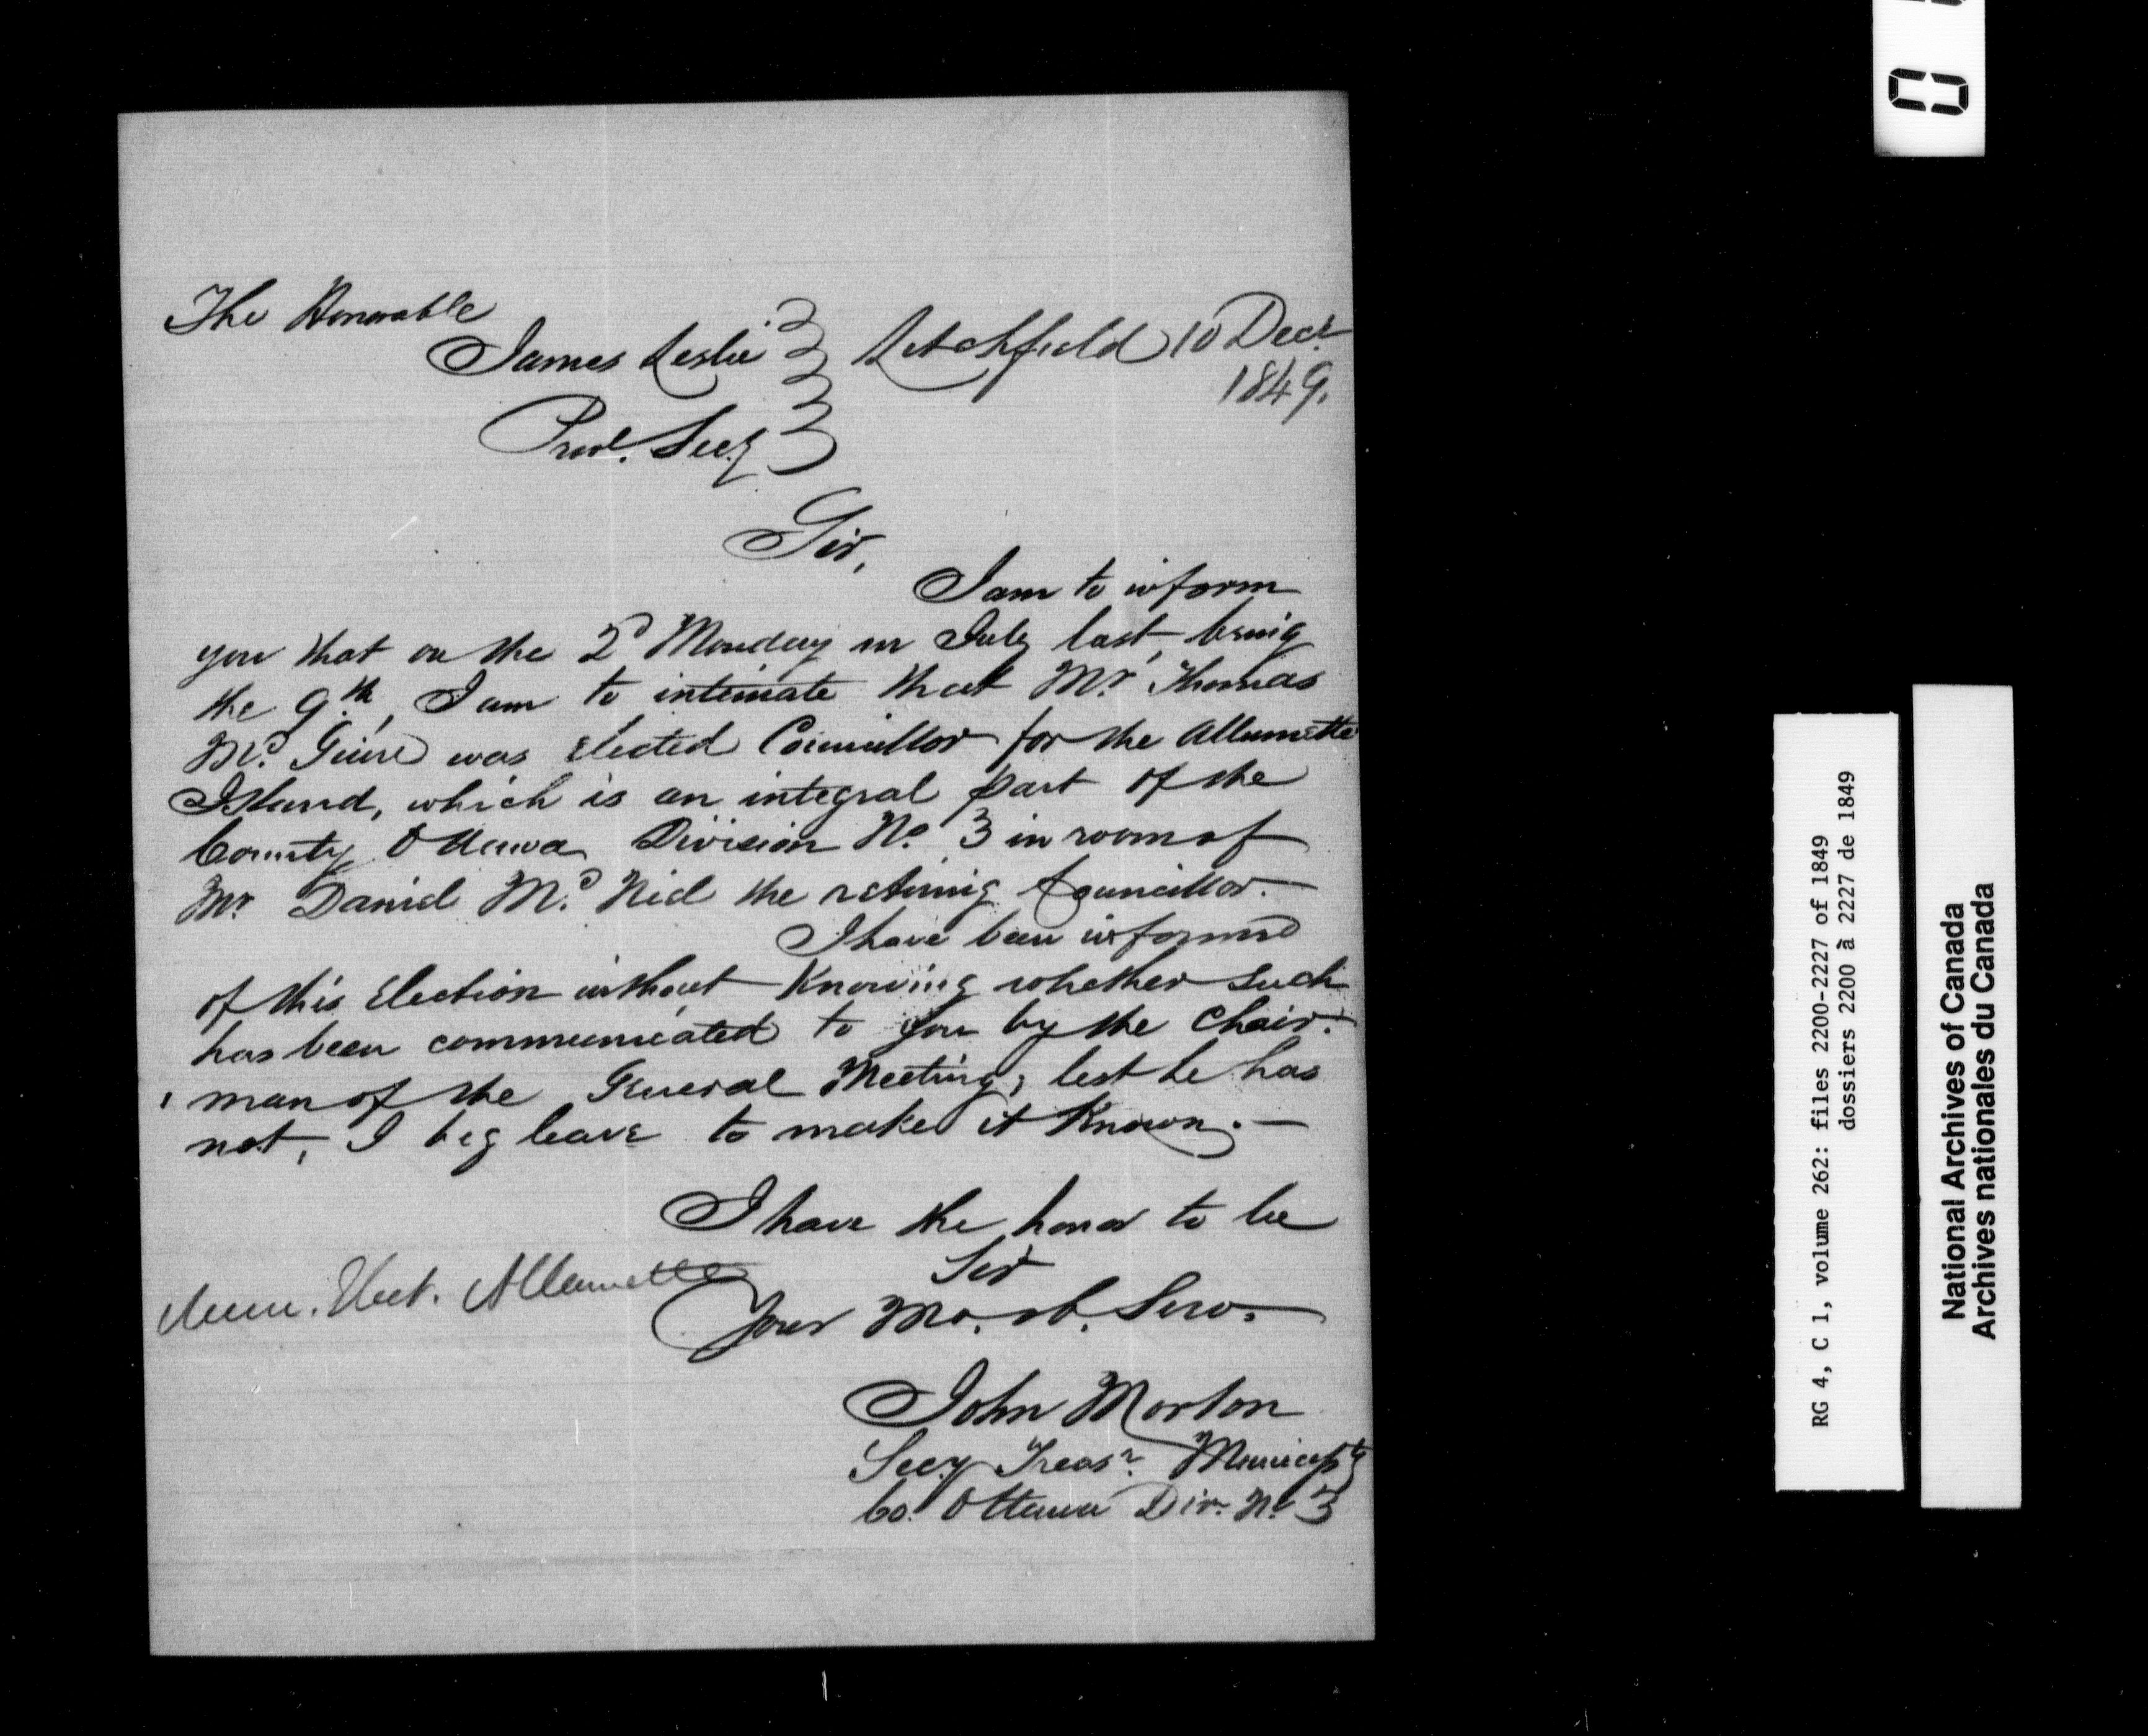 The Honorable
James Leslie
Provl. Secy
Litchfield 10 Decr.
1849.
Sir,
I am to inform
you that on the 2d Monday in July last, being
the 9th, I am to intimate that Mr. Thomas
Mc. Guire was Elected Councillor for the Allumette
Island, which is an integral part of the
County Ottawa Division No. 3 in room of
Mr Daniel Mc. Niel the retiring Councillor.—
I have been informed
of this Election without Knowing whether such
has been communicated to you by the Chair-
man of the General Meeting; lest he has
not, I beg leave to make it Known.—
I have the honor to be
Sir
Your Mo. ob. Serv.
Elect. Allumette
John Morton
Secy Treasr. Municipty
Co. Ottawa Div. No. 3
RG 4, C 1, volume 262: files 2200-2227 of 1849
dossiers 2200 à 2227 de 1849
National Archives of Canada
Archives nationales du Canada